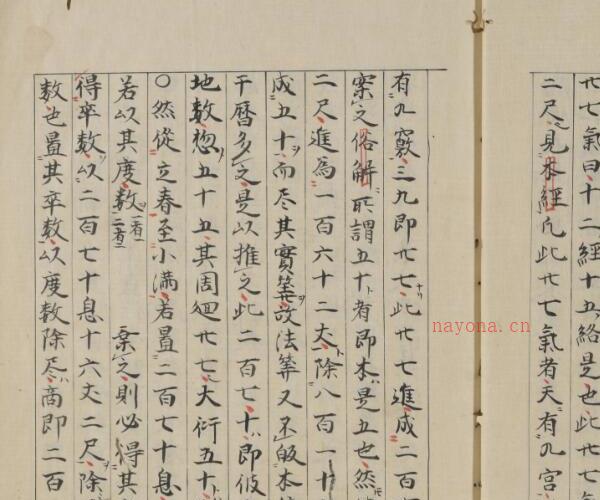 廿七氣曰十二經十五絡是也此廿七氣
二尺見本經凡此廿七氣者天有九宮
有九竅三九即廿七此廿七進成二百
案之俗解所謂五十者即本是五也然
二尺進為一百六十二丈除八百一十
成五十而尽其實筭故法筭又不本
千曆多之是以推之此二百七十即彼
地数惣五十五其周廻廿七大衍五十
〇然從立春至小満若置二百七十息
若以其度数一者一二者二 案之則必得其
得卒数以二百七十息十六丈二尺除
数也置其卒数以度数除尽商即二百
nayona.cn